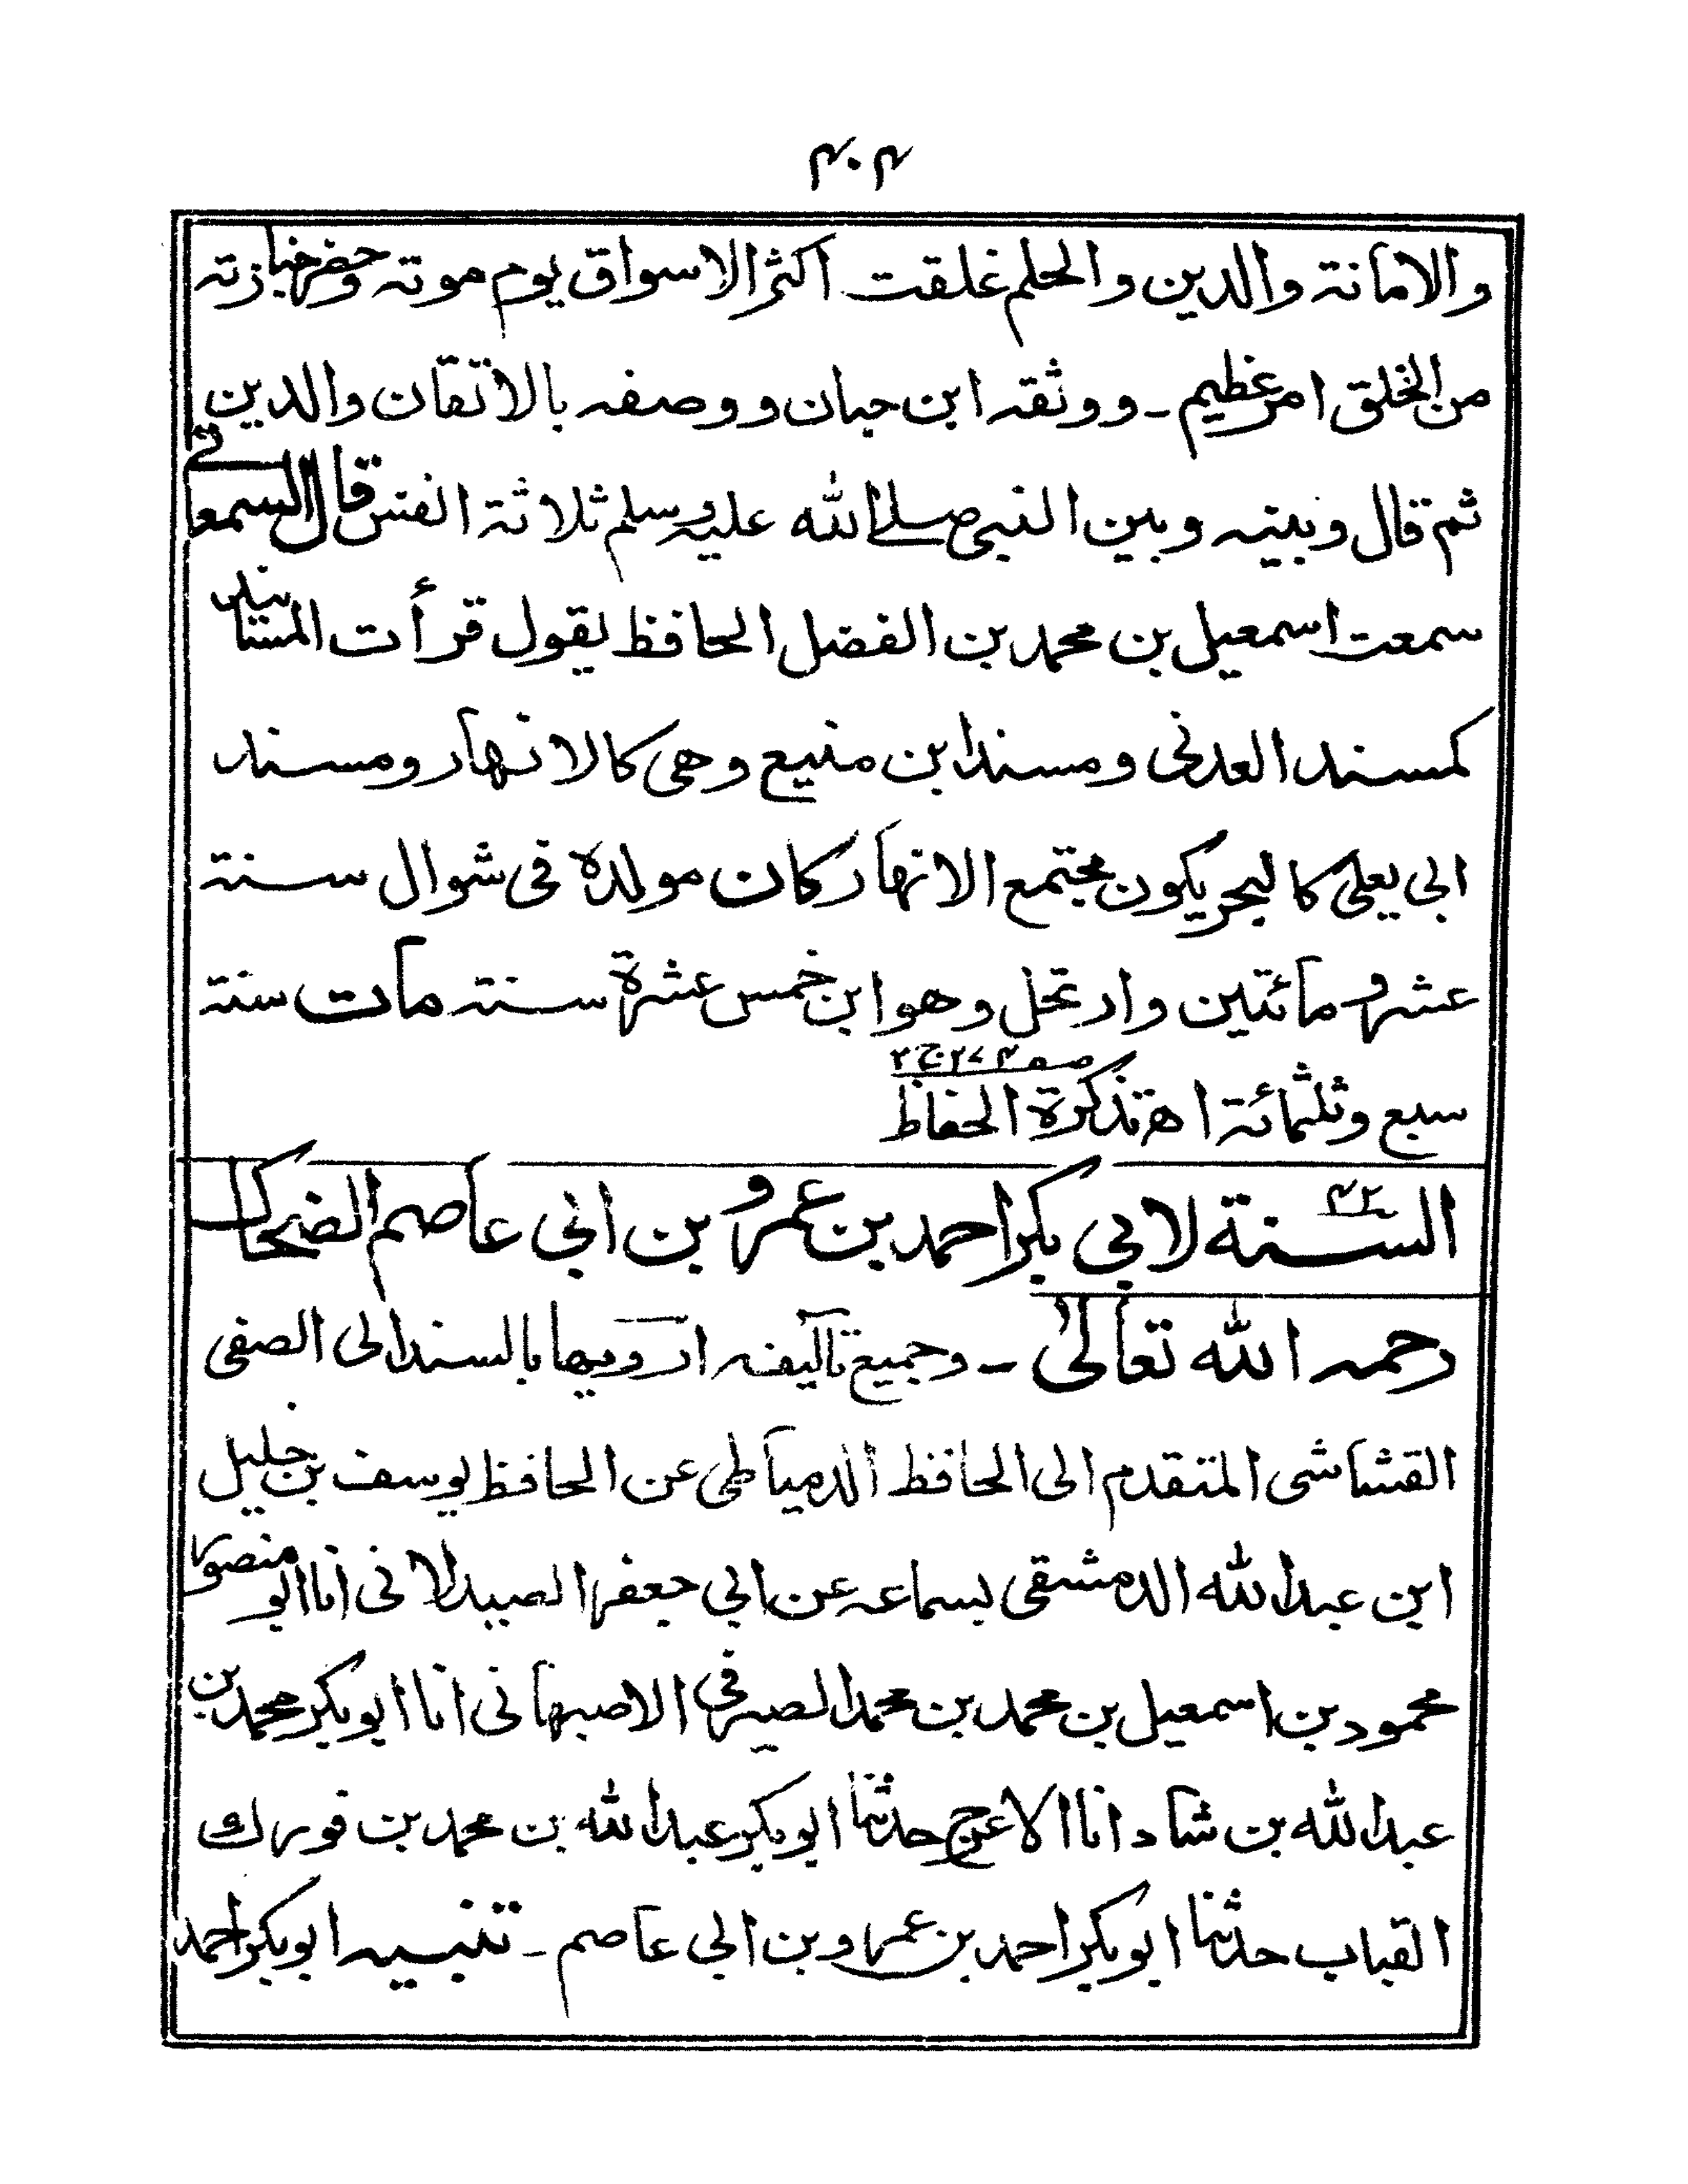 ۴۰۴
والامانة والدين والحلم غلقت اكثر الاسواق يوم موته وحضر جنازته
من الخلق امر عظيم ـ ووثقه ابن حبان ووصفه بالاتقان والدين
ثم قال وبينه وبين النبي صلے الله عليه وسلم ثلاثة انفس قال السمعانے
سمعت اسمعيل بن محمد بن الفضل الحافظ يقول قرأت المسانيد
كمسند العدنى ومسند ابن منيع وهى كالانهار ومسند
ابى يعلى كالبحر يكون مجتمع الانهار كان مولده فى شوال سنة
عشر ومائتين وارتحل وهو ابن خمس عشرة سنة مات سنة
سبع وثلثمائة اه تذكرة الحفاظ صـ ۲۷۴ ج ۲
السنة ۴۲ لابي بكر احمد بن عمرو بن ابي عاصم الضحاك
رحمه الله تعالیٰ ـ وجميع تآليفه ارويها بالسند الى الصفى
القشاشى المتقدم الى الحافظ الدمياطى عن الحافظ يوسف بن خليل
ابن عبد الله الدمشقى بسماعه عن ابي جعفر الصيدلانى انا ابو منصور
محمود بن اسمعيل بن محمد بن محمد الصيرفى الاصبهانى انا ابو بكر محمد بن
عبد الله بن شاد انا الاعرج حدثنا ابو بكر عبد الله بن محمد بن فورك
القباب حدثنا ابو بكر احمد بن عمرو بن ابي عاصم ـ تنبيه ابو بكر احمد